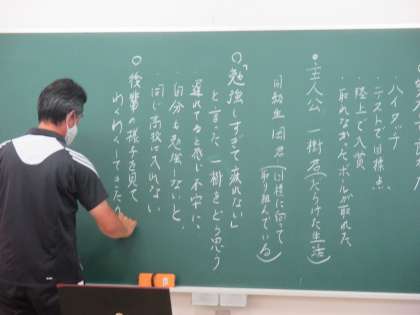 ・ハイタッチ
・テストで目標点
・陸上で入賞
・取れなかったボルが取れた
◎主人公 一樹君(だらけた生活)
同級生 岡君(目標に向けて取り組んでいる)
◎「勉強しすぎて疲れない」
と言った一樹をどう思う
・遅れてると感じ不安に
・自分も勉強しないと
・同じ高校は入れない
◎後輩の様子を見て
わくわくしてきた